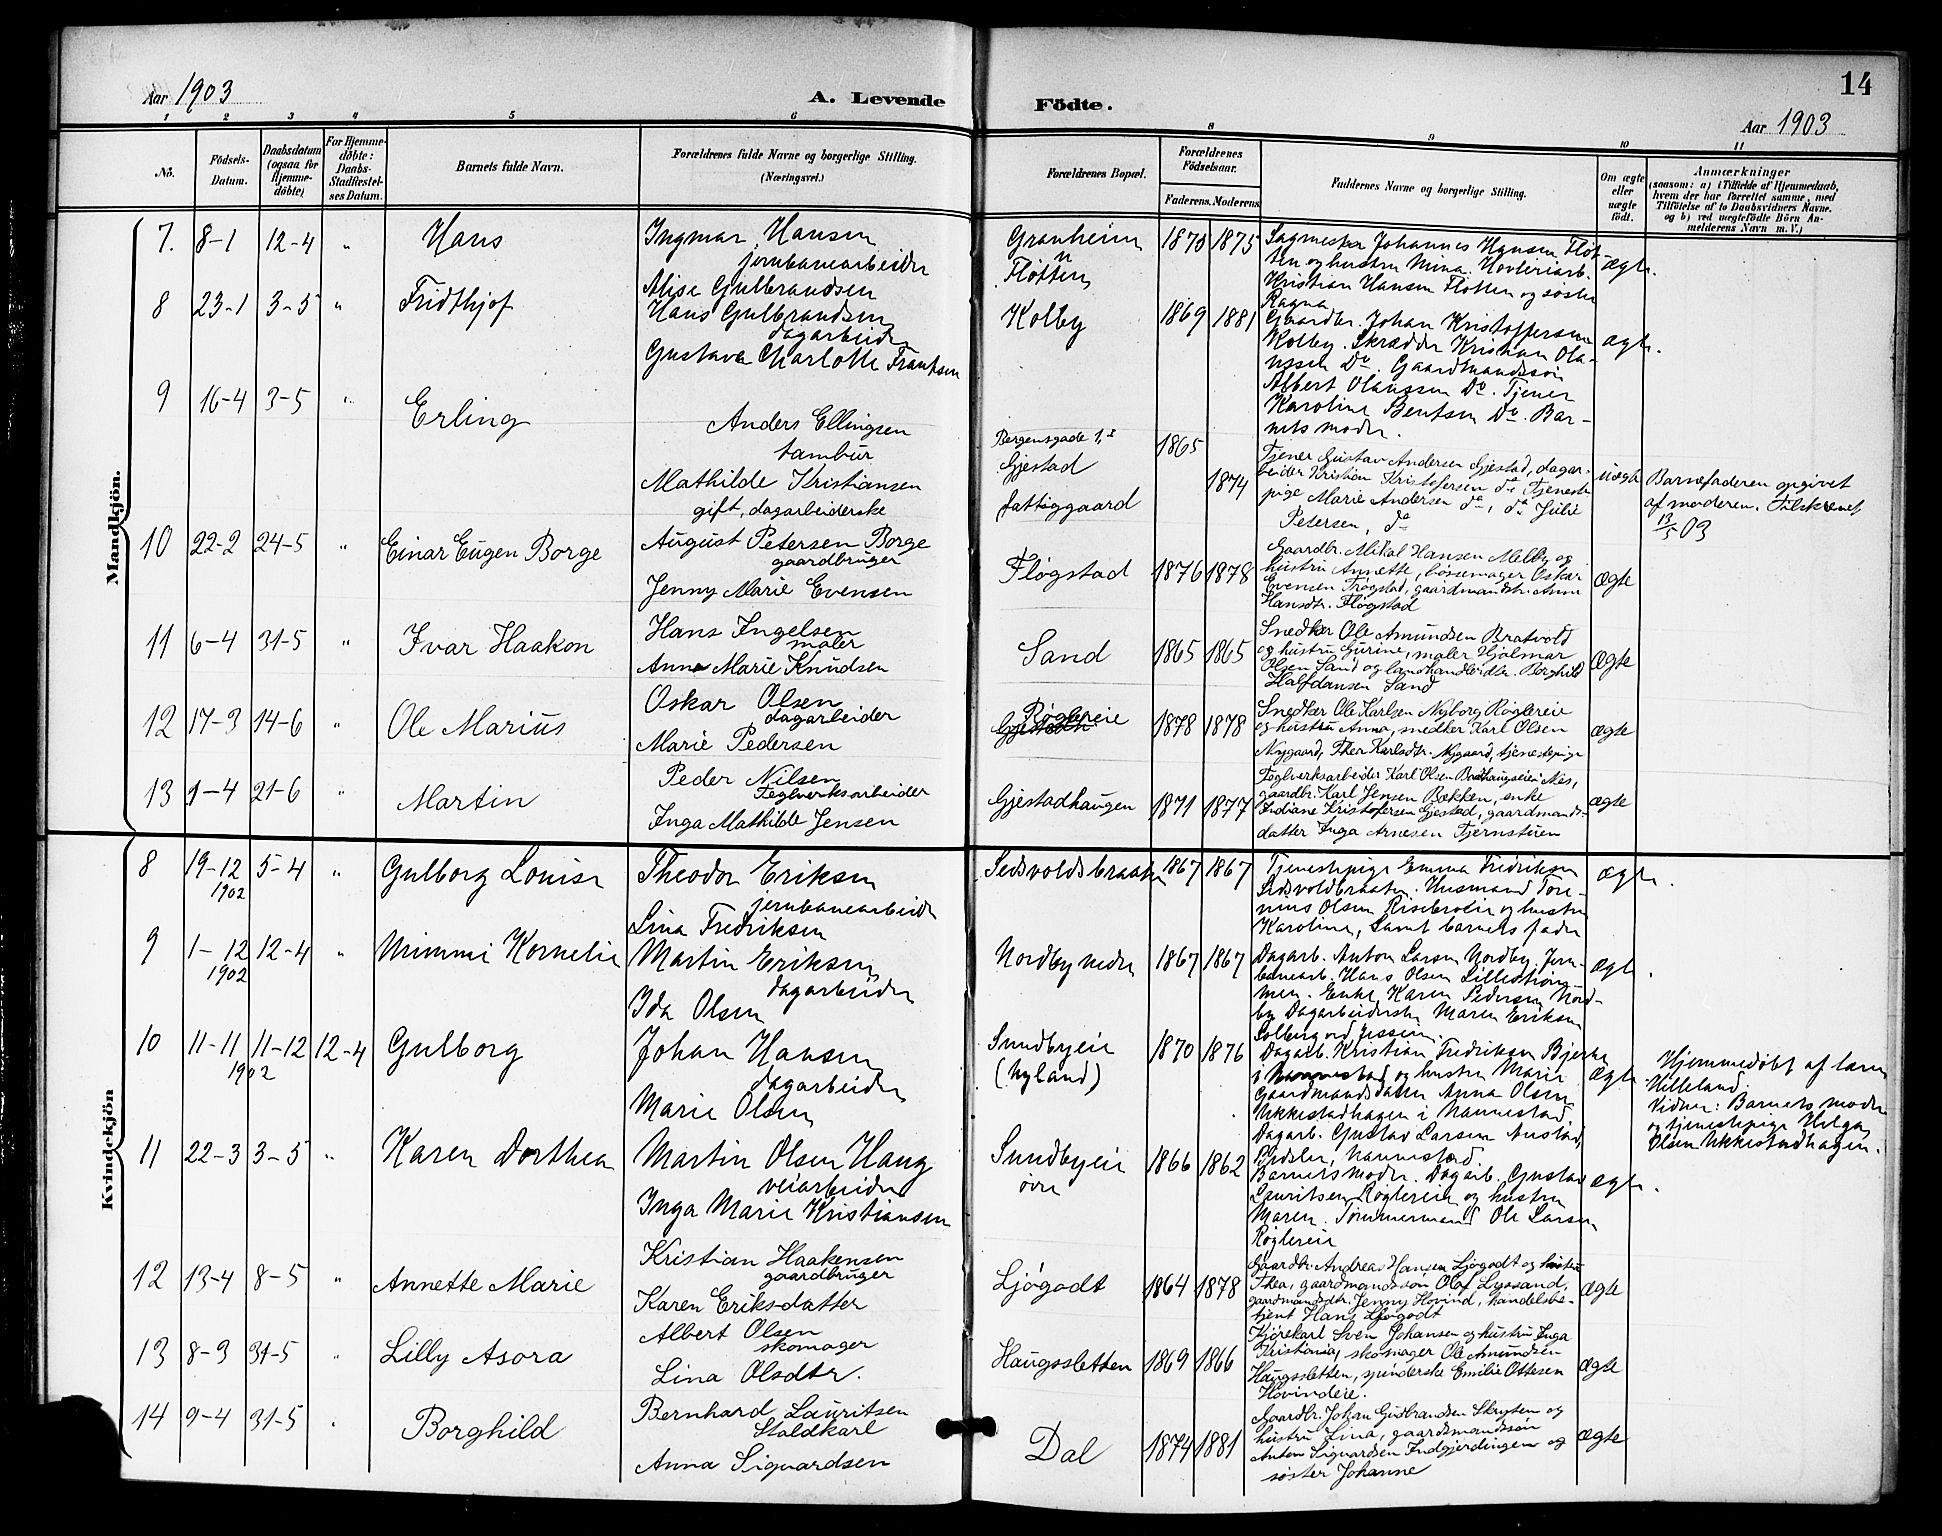 Aar 1903
A. Levende Födte.
14
Aar 1903
1 2 3 4 5 6 8 9 10 11
No.
Födsels-Datum.
Daabsdatum (ogsaa for Hjemme-döbte)
For Hjemme-döbte: Daabs-Stadfæstel-ses Datum.
Barnets fulde Navn.
Forældrenes fulde Navne og borgerlige Stilling.
(Næringsvei.)
Forældrenes Bopæl.
Forældrenes Födselsaar.
Faderens. Moderens.
Faddernes Navne og borgerlige Stilling.
Om ægte eller uægte födt.
Anmærkninger
(saasom: a) i Tilfælde af Hjemmedaab,
hvem der har forrettet samme, med
Tilföielse af to Daabsvidners Navne.
og b) ved uægtefödte Börn An-
melderens Navn m. V.)
Mandkjön.
7. 8-1 12-4 " Hans
Ingmar Hansen
jernbanearbeider
Alise Gulbrandsen
Granheim
Fløtten
1875 1875
Sagmester Johannes Hansen Fløt-
ten og hustru Mina. Høvleriarb.
Kristian Hansen Fløtten og søster
Ragna
ægte.
8 23-1 3-5 " Fridthjof
Hans Gulbrandsen
dagarbeider
Gustava Charlotte Frantsen
Kolby
1869 1881
Gaardbr. Johan Kristoffersen
Kolby. Skrædder Kristian Ola-
ussen Do. Gaardmandssøn
Albert Olaussen Do. Tjener
Karoline Bentsen Do. Bar-
nets moder.
ægte.
9 16-4 3-5 " Erling
Anders Ellingsen
tambur
Mathilde Kristiansen
gift, dagarbeiderske
Bergensgade 1,
Gjestad
fattiggaard
1865
1874
Tjener Gustav Andersen Gjestad, dagar-
beider Kristian Kristofersen do Tjeneste
pige Marie Andersen do, do Julie
Petersen, do
uægte
Barnefaderen opgivet
af moderen. Tilskrevet
13/5 03
10 22-2 24-5 " Einar Eugen Borge
August Petersen Borge
gaardbruger
Jenny Marie Evensen
Fløgstad
1876 1878
Gaardbr. Mikal Hansen Melby og
hustru Annette, bøsemager Oskar
Evensen Frøgstad, gaardmandsdtr. Anne
Hansdtr. Fløgstad
ægte
11 6-4 31-5 " Ivar Haakon
Hans Ingelsen
maler
Anne Marie Knudsen
Sand
1865 1865
Snedker Ole Amundsen Bratvold
og hustru Gurine, maler Hjalmar
Olsen Sand og landhandlerdtr. Borghild
Halfdansen Sand
ægte
12 17-3 14-6 " Ole Marius
Oskar Olsen
dagarbeider
Marie Pedersen
Røglereie
1878 1878
Snedker Ole Karlsen Nyborg Røglereie
og hustru Anna, snedker Karl Olsen
Nygaard, Thea Karlsdtr. Nygaard, tjenestepige
ægte
13 1-4 21-6 " Martin
Peder Nilsen
Teglverksarbeider
Inga Mathilde Jensen
Gjestadhaugen
1871 1877
Teglverksarbeider Karl Olsen Baathaugseie Næs,
gaardbr. Karl Jensen Bækken, enke
Indiane Kristofersen Gjestad, gaardmands-
datter Inga Arnesen Tjernsteien
ægte
Kvindekjön
8 19-12 1902 5-4 " Gulborg Louise
Theodor Eriksen
jernbanearbeider
Lina Fredriksen
Sedsvoldsbraaten
1867 1867
Tjenestepige Emma Fredriksen
Sedsvoldbraaten. Husmand Tore-
nius Olsen Risebroeie og hustru
Karoline, samt barnets fader
ægte.
9 1-12 1902 12-4 " Mimmi Kornelie
Martin Eriksen
dagarbeider
Ida Olsen
Nordby nedre
1867 1867
Dagarb. Anton Larsen Nordby. Jern-
banearb. Hans Olsen Lillestrøm-
men. Enke Karen Pedersen Nord-
by Dagarbeiderske Maren Eriksen
Solberg ved Jessein.
ægte.
10 11-11 1902 11-12 12-4 Gulborg
Johan Hansen
dagarbeider
Marie Olsen
Sundbyeie
(Nyland)
1870 1876
Dagarb. Kristian Fredriksen Bjerke
i Nannestad og hustru Marie
Gaardmandsdatter Anna Olsen
Ukkestadhagen i Nannestad
Dagarb. Gustav Larsen Austad,
Nannestad
Barnets moder.
ægte
Hjemmedøbt af lærer
Hilleland.
Vidner: Barnets moder
og tjenestepige Helga
Olsen Ukkestadhagen.
11 22-3 3-5 " Karen Dorthea
Martin Olsen Haug
veiarbeider
Inga Marie Kristiansen
Sundbyeie
øvre
1866 1862
Dagarb. Gustav
Lauritsen Røglereie og hustru
Maren. Tømmermand Ole Larsen
Røglereie
ægte.
12 13-4 8-5 " Annette Marie
Kristian Haakensen
gaardbruger
Karen Eriksdatter
Ljøgodt
1864 1878
Gaardbr. Andreas Hansen Ljøgodt og hustru
Thea, gaardmandssøn Olaf Lyssand,
gaardmandsdtr. Jenny Hovind, handelsbe-
tjent Hans Ljøgodt
ægte
13 8-3 31-5 " Lilly Asora
Albert Olsen
skomager
Lina Olsdtr.
Haugssletten
1869 1866
Kjørekarl Sven Johansen og hustru Inga
Kristiania, skomager Ole Amundsen
Haugssletten, spinderske Emilie Ottesen
Hovindeie.
ægte
14 9-4 31-5 " Borghild
Bernhard Lauritsen
Staldkarl
Anna Siguardsen
Dal
1874 1881
Gaardbr. Johan Gudbrandsen Skryten og
hustru Lina, gaardsmandssøn
Anton Siguardsen Indgjerdingen og
søster Johanne
ægte